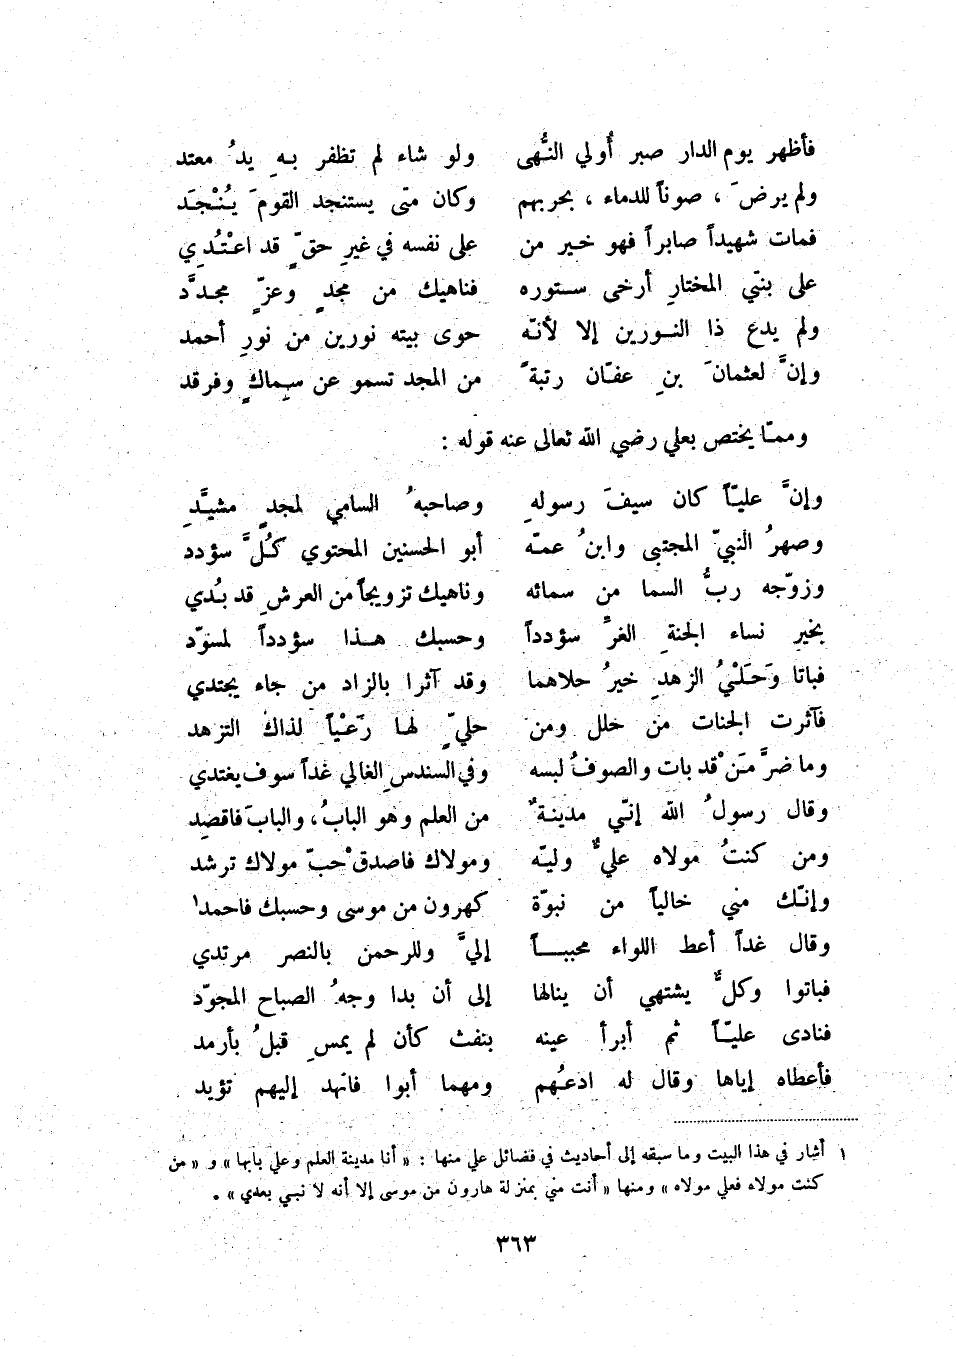 فأظهر يوم الدار صبر أُولي النُّهى ولو شاء لم تظفر بهِ يدُ معتد
ولم يرضَ ، صوناً للدماء ، بحربهم وكان متى يستنجد القومَ يُنْجَد
فمات شهيداً صابراً فهو خير من على نفسه في غيرِ حقٍّ قد اعْتُدِي
على بنتي المختارِ أرخى ستوره فناهيك من مجدٍ وعزٍّ مجدَّد
ولم يدع ذا النورين إلا لأنّه حوى بيته نورين من نورِ أحمد
وإنَّ لعثمانَ بنِ عفّان رتبةً من المجد تسمو عن سِماكٍ وفرقد
وممّا يختص بعلي رضي الله تعالى عنه قوله :
وإنَّ عليّاً كان سيفَ رسولهِ وصاحبهُ السامي لمجدٍ مشيَّدِ
وصهرُ النبيّ المجتبى وابنُ عمّه أبو الحسنين المحتوي كُلَّ سؤدد
وزوّجه ربُّ السما من سمائه وناهيك تزويجاً من العرشِ قد بُدي
بخيرِ نساء الجنةِ الغرِّ سؤدداً وحسبك هذا سؤدداً لمسوّد
فباتا وَحَلْيُ الزهدِ خيرُ حلاهما وقد آثرا بالزاد من جاء يجتدي
فآثرت الجنات من حلل ومن حليٍّ لها رَعْياً لذاك التزهد
وما ضرَّ مَنْ قد بات والصوفُ لبسه وفي السندسِ الغالي غداً سوف يغتدي
وقال رسولُ الله إنّي مدينةٌ من العلم وهو البابُ، والبابَ فاقصِد
ومن كنتُ مولاه عليٌّ وليّه ومولاك فاصدقْ حبّ مولاك ترشد
وإنّك مني خالياً من نبوّة كهرون من موسى وحسبك فاحمد¹
وقال غداً أعط اللواء محبباً إليَّ وللرحمن بالنصر مرتدي
فباتوا وكلٌّ يشتهي أن ينالها إلى أن بدا وجهُ الصباح المجوّد
فنادى عليّاً ثم أبرأ عينه بنفث كأن لم يمسِ قبلُ بأرمد
فأعطاه إياها وقال له ادعُهم ومهما أبوا فانهد إليهم تؤيد
١ أشار في هذا البيت وما سبقه إلى أحاديث في فضائل علي منها : « أنا مدينة العلم وعلي بابها » و « من
كنت مولاه فعلي مولاه » ومنها « أنت مني بمنزلة هارون من موسى إلا أنه لا نبي بعدي » .
٣٦٣